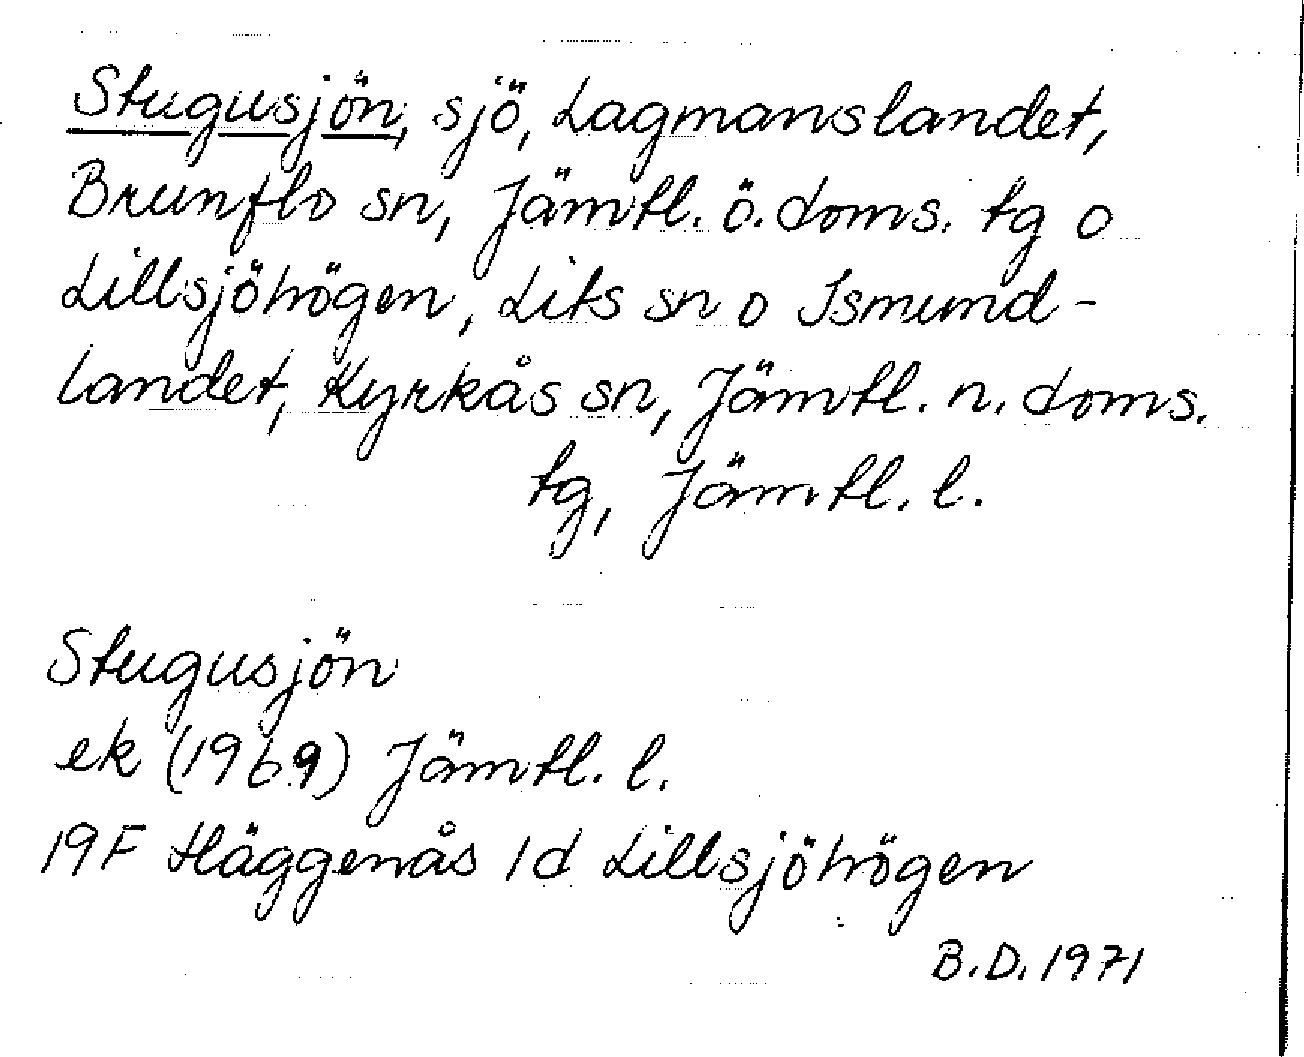 Stugusjön, sjö, Lagmanslandet,
Brunflo sn, Jämtl. ö. doms. tg o
Lillsjöhögen, Lits sn o Ismund-
landet, Kyrkås sn, Jämtl. n. doms.
tg, Jämtl. l.
Stugusjön
ek (1969) Jämtl. l.
19F Häggenås 1d Lillsjöhögen
B.D. 1971